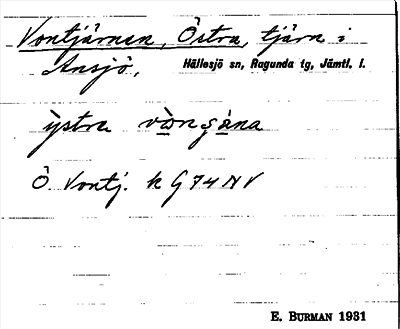 Vontjärnen, Östra, tjärn i
Ansjö, Hällesjö sn, Ragunda tg, Jämtl. l.
ỳstra
Ö. Vontj. k G 74 NV
E. BURMAN 1931